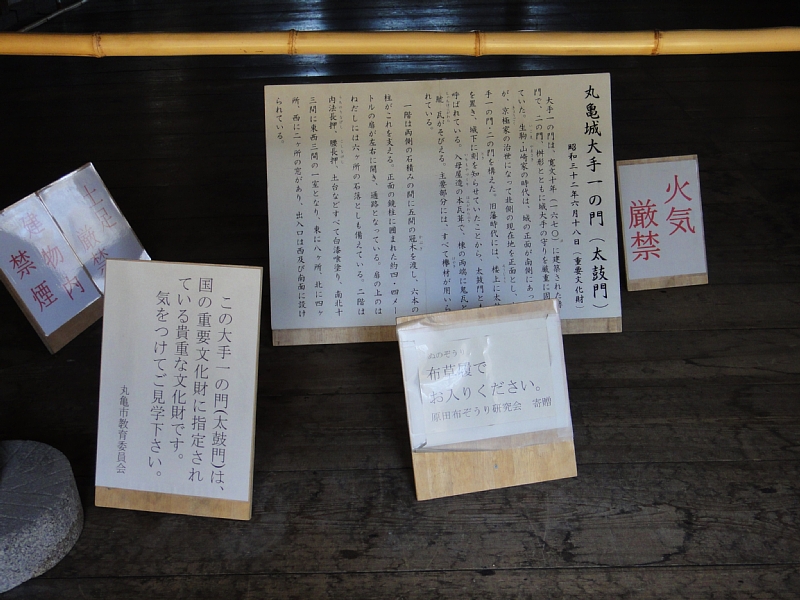 丸亀城大手一の門（太鼓門）
昭和三十二年六月十八日（重要文化財）
大手一の門は、寛文十年（一六七〇）に建築された
門で、二の門、桝形とともに城大手の守りを厳重に固
ていた。生駒・山崎家の時代は、城の正面が南側にあっ
が、京極家の治世になって北側の現在地を正面とし、
手一の門・二の門を構えた。旧藩時代には、楼上に太
を置き、城下に刻を知らせていたことから、太鼓門と
呼ばれている。入母屋造の本瓦葺で、棟の両端に鬼瓦と
鯱瓦がそびえる。主要部分には、すべて欅材が用い
れている。
一階は両側の石積みの間に五間の冠木を渡し、六本の
柱がこれを支える。正面の鏡柱に囲まれた約四・四メー
トルの扉が左右に開き、通路となっている。扉の上のは
ねだしには六ヶ所の石落としも備えている。二階は
内法長押、腰長押、土台などすべて白漆喰塗り、南北十
三間に東西三間の一室となり、東に八ヶ所、北に四ヶ
所、西に二ヶ所の窓があり、出入口は西及び南面に設け
られている。
火気
厳禁
土足厳禁
建物内
禁煙
この大手一の門(太鼓門)は、
国の重要文化財に指定され
ている貴重な文化財です。
気をつけてご見学下さい。
丸亀市教育委員会
ぬのぞうり
布草履で
お入りください。
原田布ぞうり研究会　寄贈